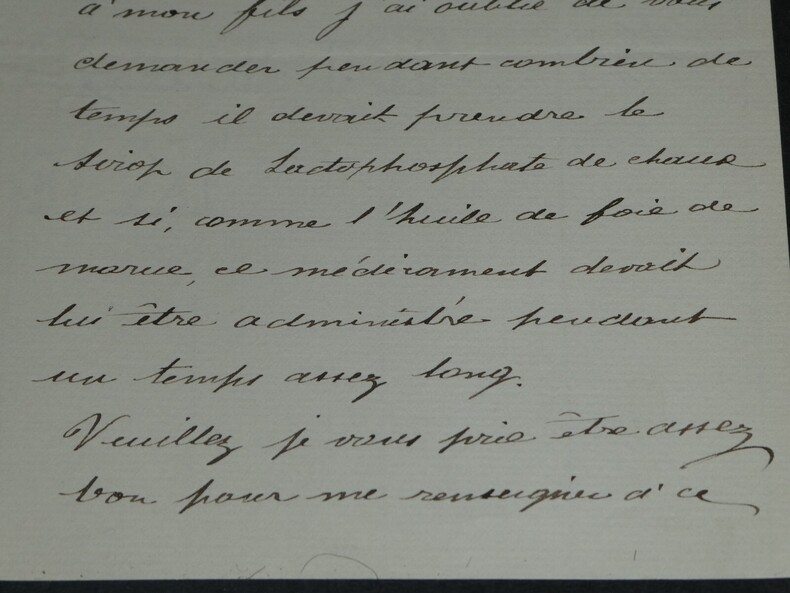 à mon fils j'ai oublié de vous
demander pendant combien de
temps il devait prendre le
Sirop de Lactophosphate de chaux
et si, comme l'huile de foie de
morue, ce médicament devait
lui être administré pendant
un temps assez long.
Veuillez je vous prie être assez
bon pour me renseigner à ce